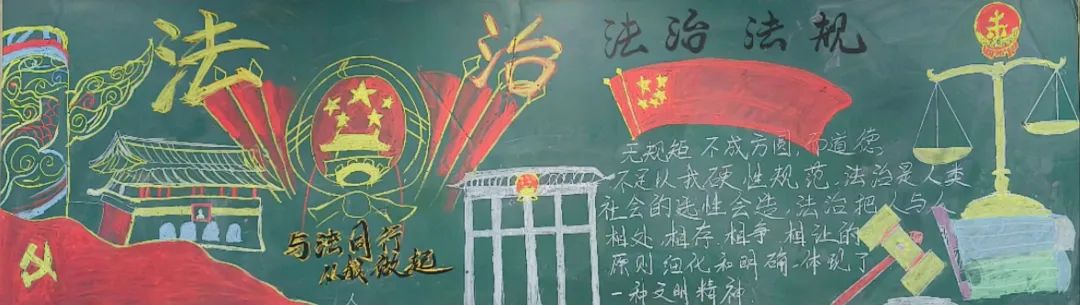 法治
与法同行
从我做起
人
法治法规
无规矩 不成方圆,而道德
不足以我硬性规范,法治是人类
社会的选性会造,法治把人与人
相处,相存,相争,相让的
原则细化和明确,体现了
一种文明精神!